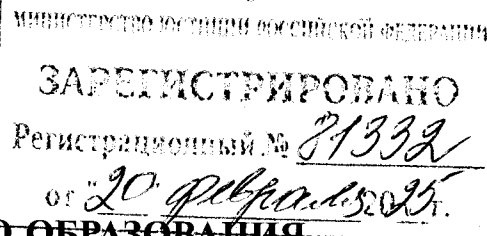 МИНИСТЕРСТВО ЮСТИЦИИ РОССИЙСКОЙ ФЕДЕРАЦИИ
ЗАРЕГИСТРИРОВАНО
Регистрационный № 81332
от "20 февраля 2025г.
ОБРАЗОВАНИЯ